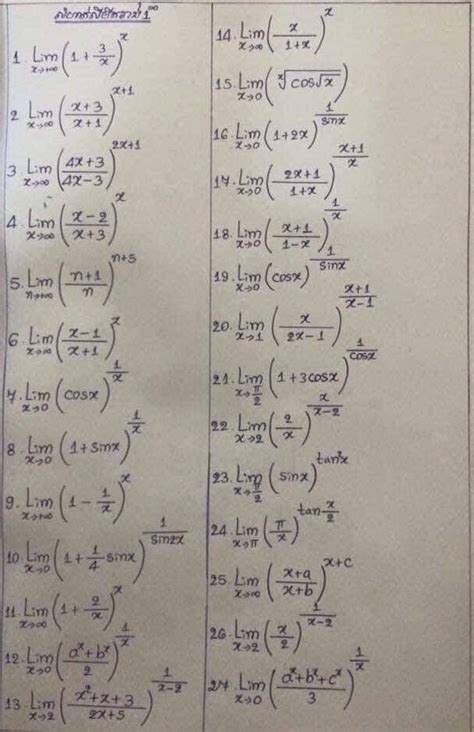 លំហាត់លីមីតរាងមិនកំណត់ 1^∞
1. Lim x→+∞ (1 + 3/x)^x
2 Lim x→∞ ((x+3)/(x+1))^(x+1)
3 Lim x→∞ ((4x+3)/(4x-3))^(2x+1)
4. Lim x→∞ ((x-2)/(x+3))^x
5. Lim n→+∞ ((n+1)/n)^(n+5)
6. Lim x→∞ ((x-1)/(x+1))^x
7. Lim x→0 (cosx)^(1/x)
8. Lim x→0 (1+sinx)^(1/x)
9. Lim x→+∞ (1 - 1/x)^x
10. Lim x→0 (1 + 1/4 sinx)^(1/sin2x)
11. Lim x→∞ (1 + 2/x)^x
12. Lim x→0 ((a^x+b^x)/2)^(1/x)
13. Lim x→2 ((x²+x+3)/(2x+5))^(1/(x-2))
14. Lim x→∞ (x/(1+x))^x
15. Lim x→0 (ˣ√(cos√x))
16. Lim x→0 (1+2x)^(1/sinx)
17. Lim x→0 ((2x+1)/(1+x))^((x+1)/x)
18. Lim x→0 ((x+1)/(1-x))^(1/x)
19. Lim x→0 (cosx)^(1/sinx)
20. Lim x→1 (x/(2x-1))^((x+1)/(x-1))
21. Lim x→π/2 (1+3cosx)^(1/cosx)
22. Lim x→2 (2/x)^(x/(x-2))
23. Lim x→π/2 (sinx)^(tan²x)
24. Lim x→π (π/x)^(tan x/2)
25. Lim x→∞ ((x+a)/(x+b))^(x+c)
26. Lim x→2 (x/2)^(1/(x-2))
27. Lim x→0 ((a^x+b^x+c^x)/3)^(1/x)